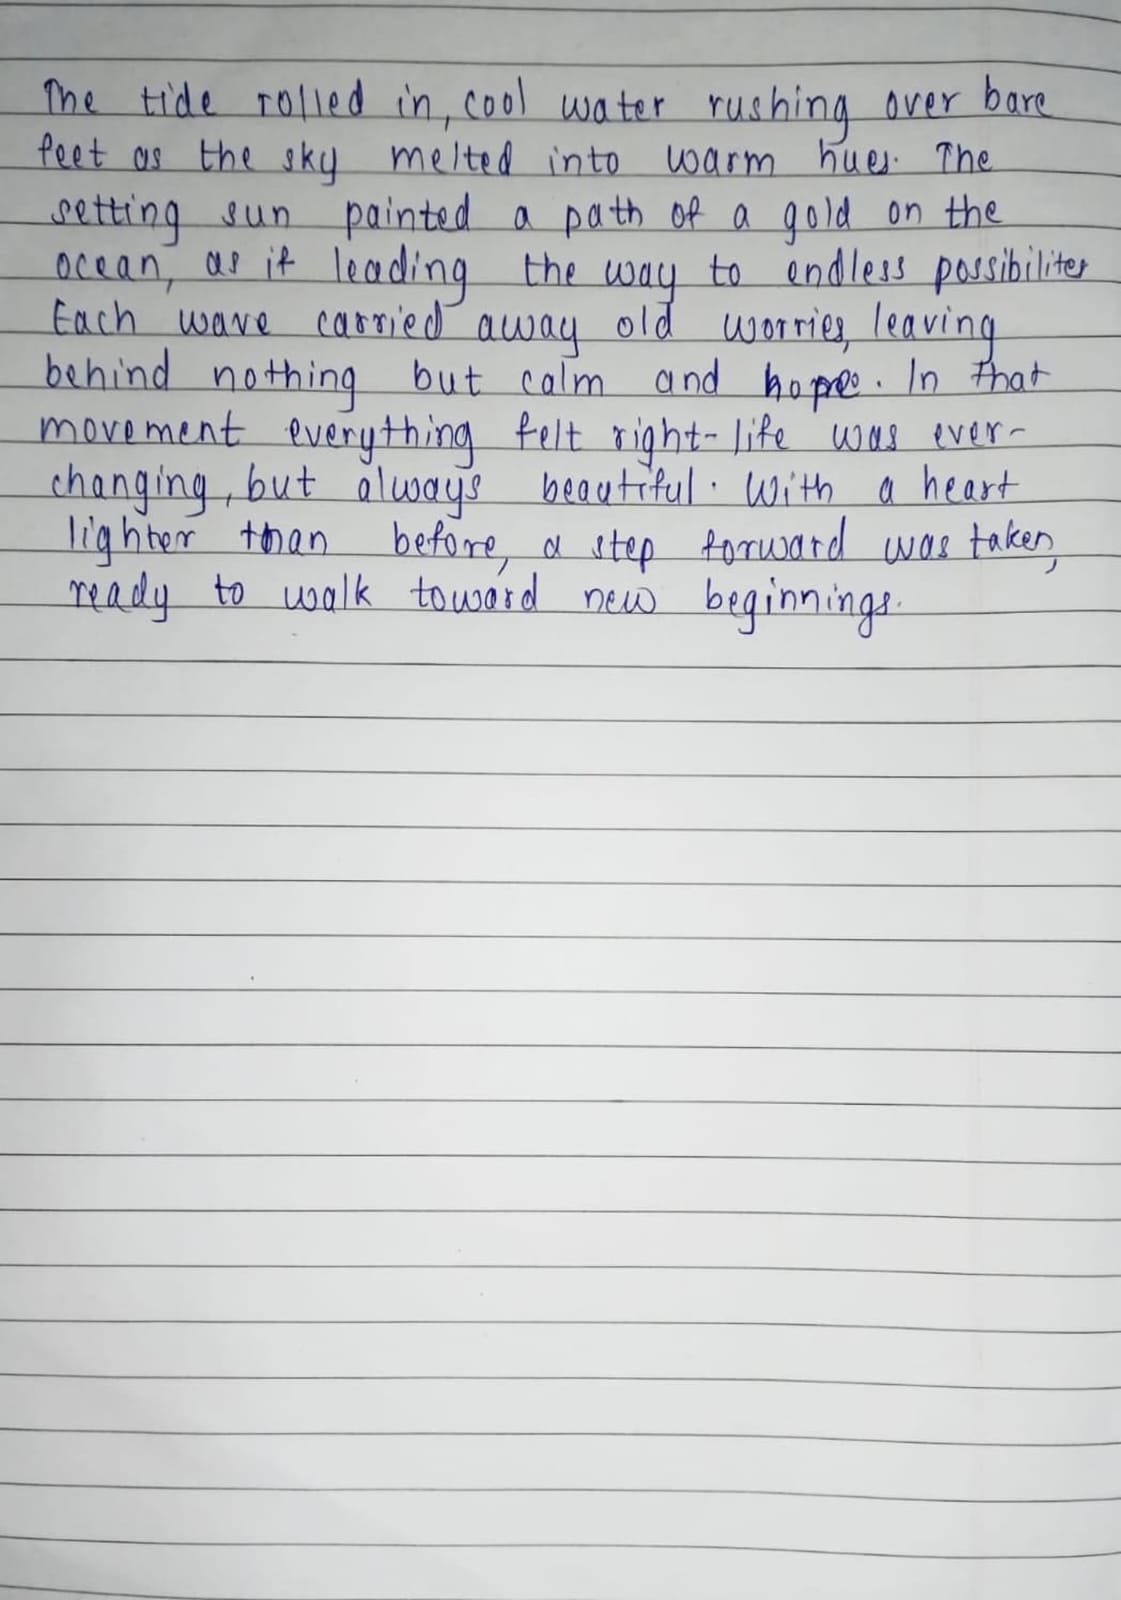 The tide rolled in, cool water rushing over bare
feet as the sky melted into warm hues. The
setting sun painted a path of a gold on the
ocean, as if leading the way to endless possibilites
Each wave carried away old worries, leaving
behind nothing but calm and hope. In that
movement everything felt right- life was ever-
changing, but always beautiful. With a heart
lighter than before, a step forward was taken,
ready to walk toward new beginnings.